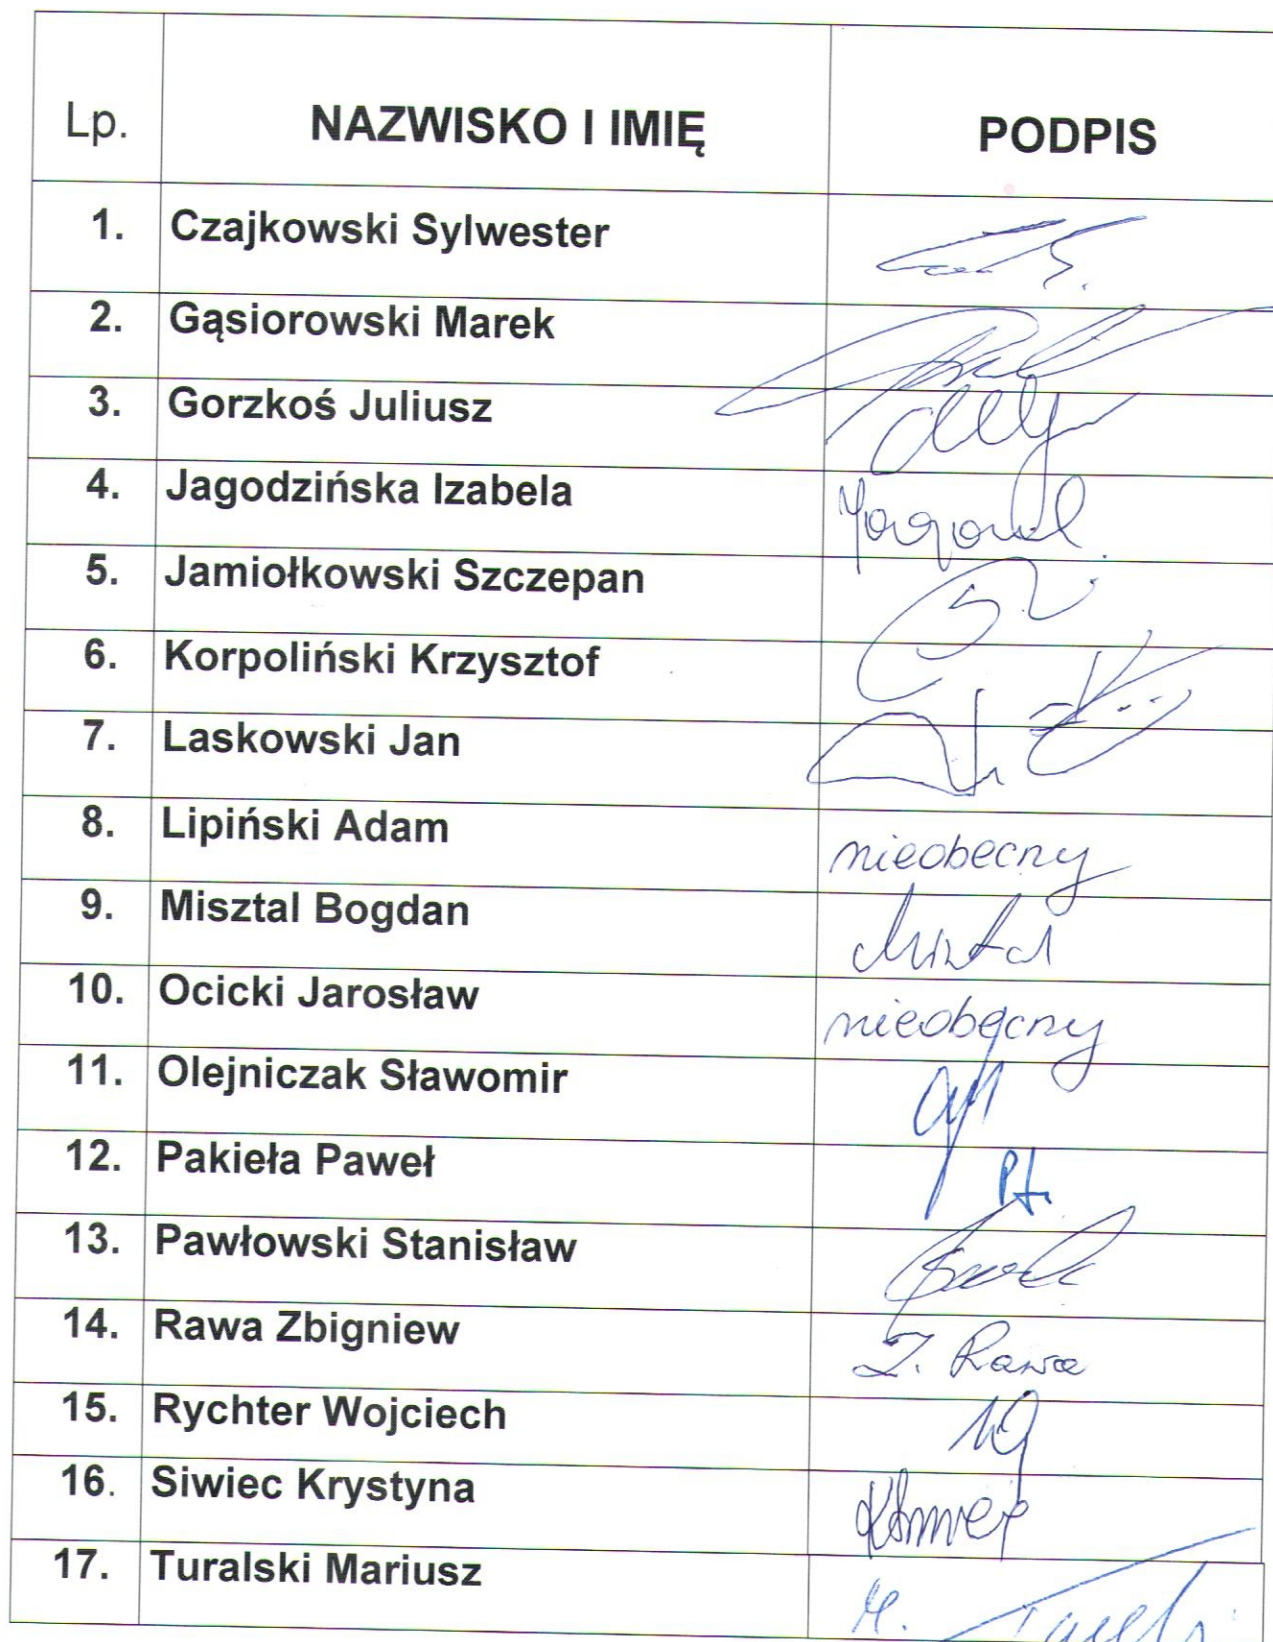 Lp. NAZWISKO I IMIĘ PODPIS
1. Czajkowski Sylwester
2. Gąsiorowski Marek
3. Gorzkoś Juliusz
4. Jagodzińska Izabela
5. Jamiołkowski Szczepan
6. Korpoliński Krzysztof
7. Laskowski Jan
8. Lipiński Adam nieobecny
9. Misztal Bogdan
10. Ocicki Jarosław nieobecny
11. Olejniczak Sławomir
12. Pakieła Paweł
13. Pawłowski Stanisław
14. Rawa Zbigniew Z. Rawa
15. Rychter Wojciech
16. Siwiec Krystyna
17. Turalski Mariusz